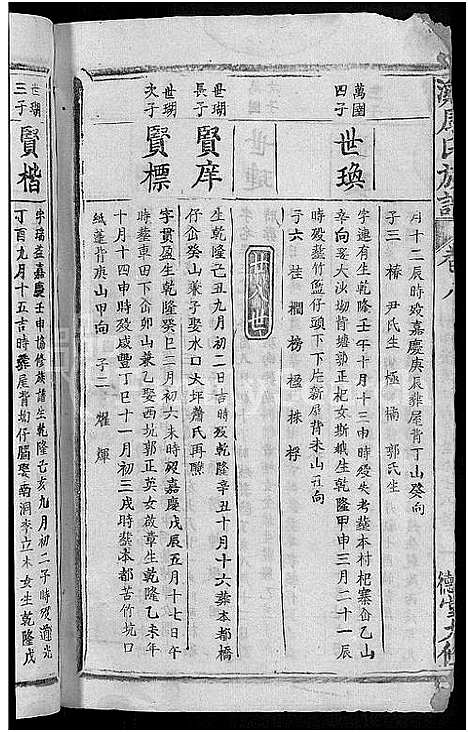 月十二辰時歿嘉慶庚辰葬屋背丁山癸向
子三 椿 尹氏生 極 楠 郭氏生
萬國四子
世瑍
字連有生乾隆壬午十月十三申時歿失考葬本村杷寨侖乙山
辛向娶大汾坳背塘郭正杞女斯娥生乾隆甲申三月二十一辰
時歿葬竹仔頭下下片新屋背未山丑向
子六 桂 榈 榜 楹 株 桴
廿八世
世瑚長子
賢庠
生乾隆己丑九月初二日吉時歿乾隆辛丑十月十六葬本都橋
仔侖癸山兼子娶水口大坪蕭氏再聯
世瑚次子
賢標
字貫盈生乾隆癸巳三月初六未時歿嘉慶戊辰五月十七巳
時葬車田下侖卯山兼乙娶西坑郭正英女啟章生乾隆乙未年
十月十四申時歿咸豐丁巳十一月初三戌時葬本都苦竹坑口
紙蓬背庚山甲向 子二 燿 煇
世瑚三子
賢楷
字瑞益嘉慶壬申協修族譜生乾隆己亥九月初二子時歿道光
丁酉九月十五吉時葬屋背坳仔腦娶南洞李立未女生乾隆戊
氏族譜
卷八
德堂九修